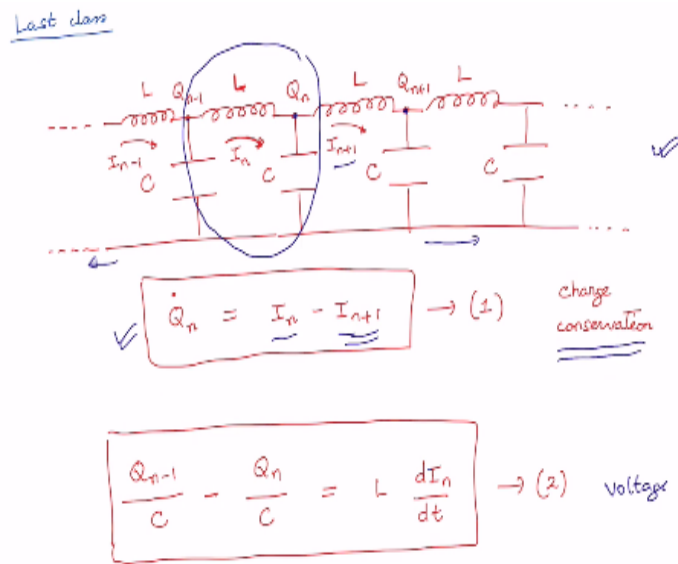 Last class
L Q_{n-1} L Q_n L Q_{n+1} L
I_{n-1} I_n I_{n+1}
C C C C
Q̇_n = I_n - I_{n+1} → (1) charge
conservation
Q_{n-1}/C - Q_n/C = L dI_n/dt → (2) voltage